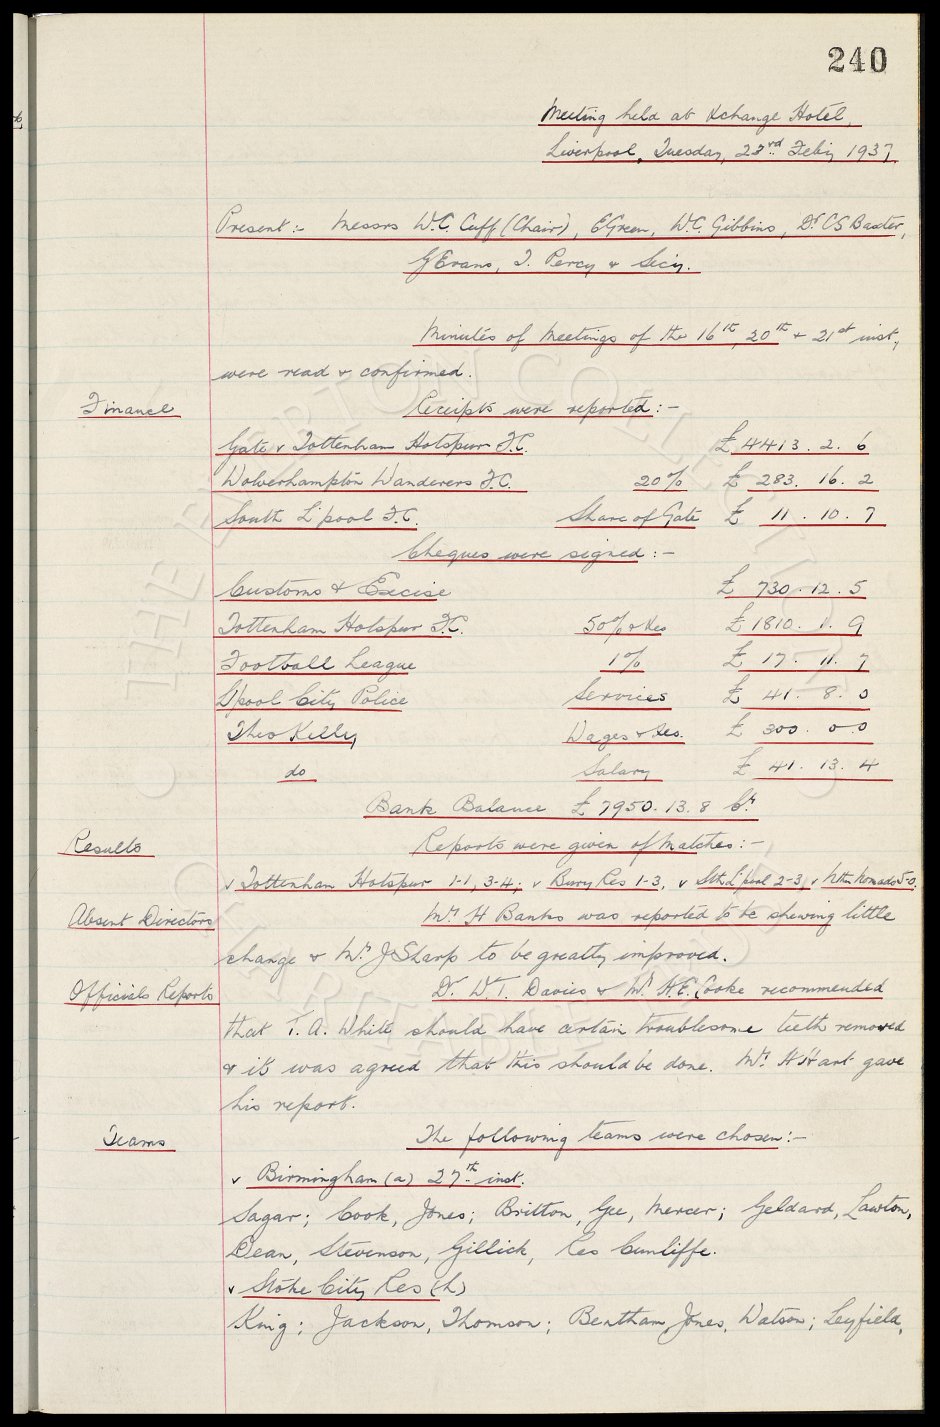 240
Meeting held at Xchange Hotel,
Liverpool, Tuesday, 23rd Feby 1937
Present:- Messrs W.C. Cuff (Chair), E Green, W.C. Gibbins, Dr CS Baxter,
G Evans, T. Percy & Secy.
Minutes of Meetings of the 16th, 20th & 21st inst,
were read & confirmed.
Finance Receipts were reported:-
Gate v Tottenham Hotspur F.C. £ 4413. 2. 6
Wolverhampton Wanderers F.C. 20% £ 283. 16. 2
South L'pool F.C. Share of Gate £ 11. 10. 7
Cheques were signed:-
Customs & Excise £ 730. 12. 5
Tottenham Hotspur F.C. 50% & Res £ 1810. 1. 9
Football League 1% £ 17. 11. 7
L'pool City Police Services £ 41. 8. 0
Theo Kelly Wages & Res. £ 300. 0. 0
do Salary £ 41. 13. 4
Bank Balance £ 7950. 13. 8 Cr
Results Reports were given of Matches:-
v Tottenham Hotspur 1-1, 3-4; v Bury Res 1-3, v Sth L'pool 2-3, v Nthn Nomads 5-0.
Absent Directors Mr. H Banks was reported to be shewing little
change & Mr. J Sharp to be greatly improved.
Officials Reports Dr. W.T. Davies & Mr. H.E. Cooke recommended
that T. A. White should have certain troublesome teeth removed
& it was agreed that this should be done. Mr. H Hart gave
his report.
Teams The following teams were chosen:-
v Birmingham (a) 27th inst.
Sagar; Cook, Jones; Britton, Gee, Mercer; Geldard, Lawton,
Dean, Stevenson, Gillick, Res Cunliffe.
v Stoke City Res (h)
King; Jackson, Thomson; Bentham, Jones, Watson; Leyfield,
© THE EVERTON COLLECTION
CHARITABLE TRUST